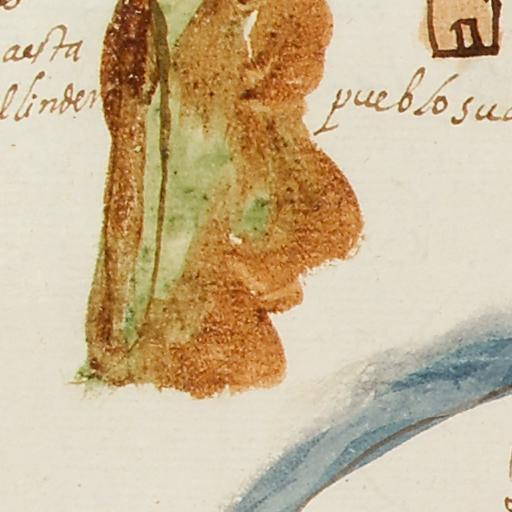 aesta
llinder
pueblo sua